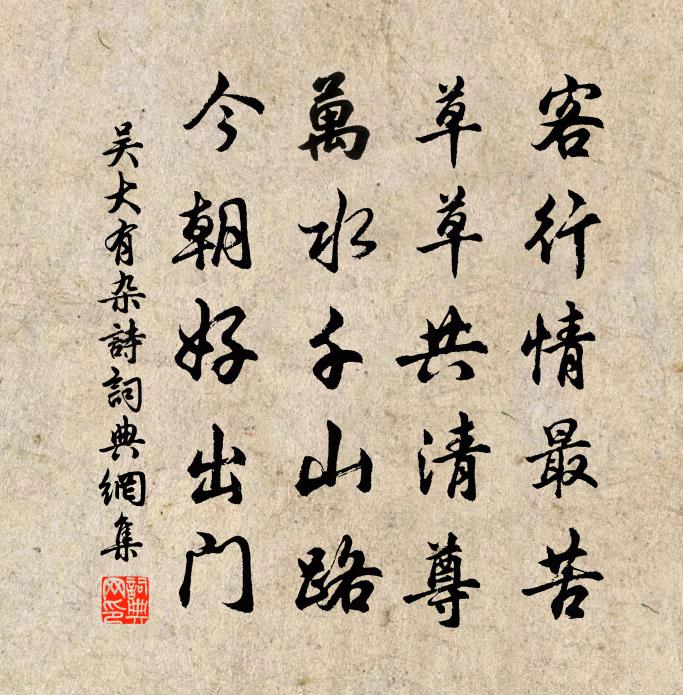 客行情最苦
草草共清尊
萬水千山路
今朝好出門
吴大有杂詩詞典網集
詞典網印